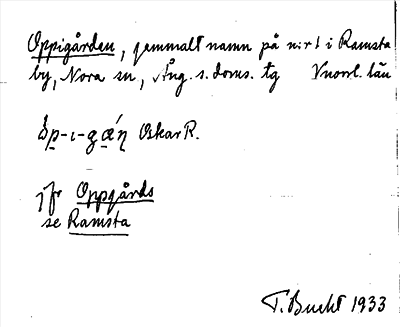 Oppigården, gammalt namn på nr 1 i Ramsta
by, Nora sn, Ång. s. doms. tg Vnorrl. län
Oskar R.
jfr Oppgårds
se Ramsta
T. Bucht 1933